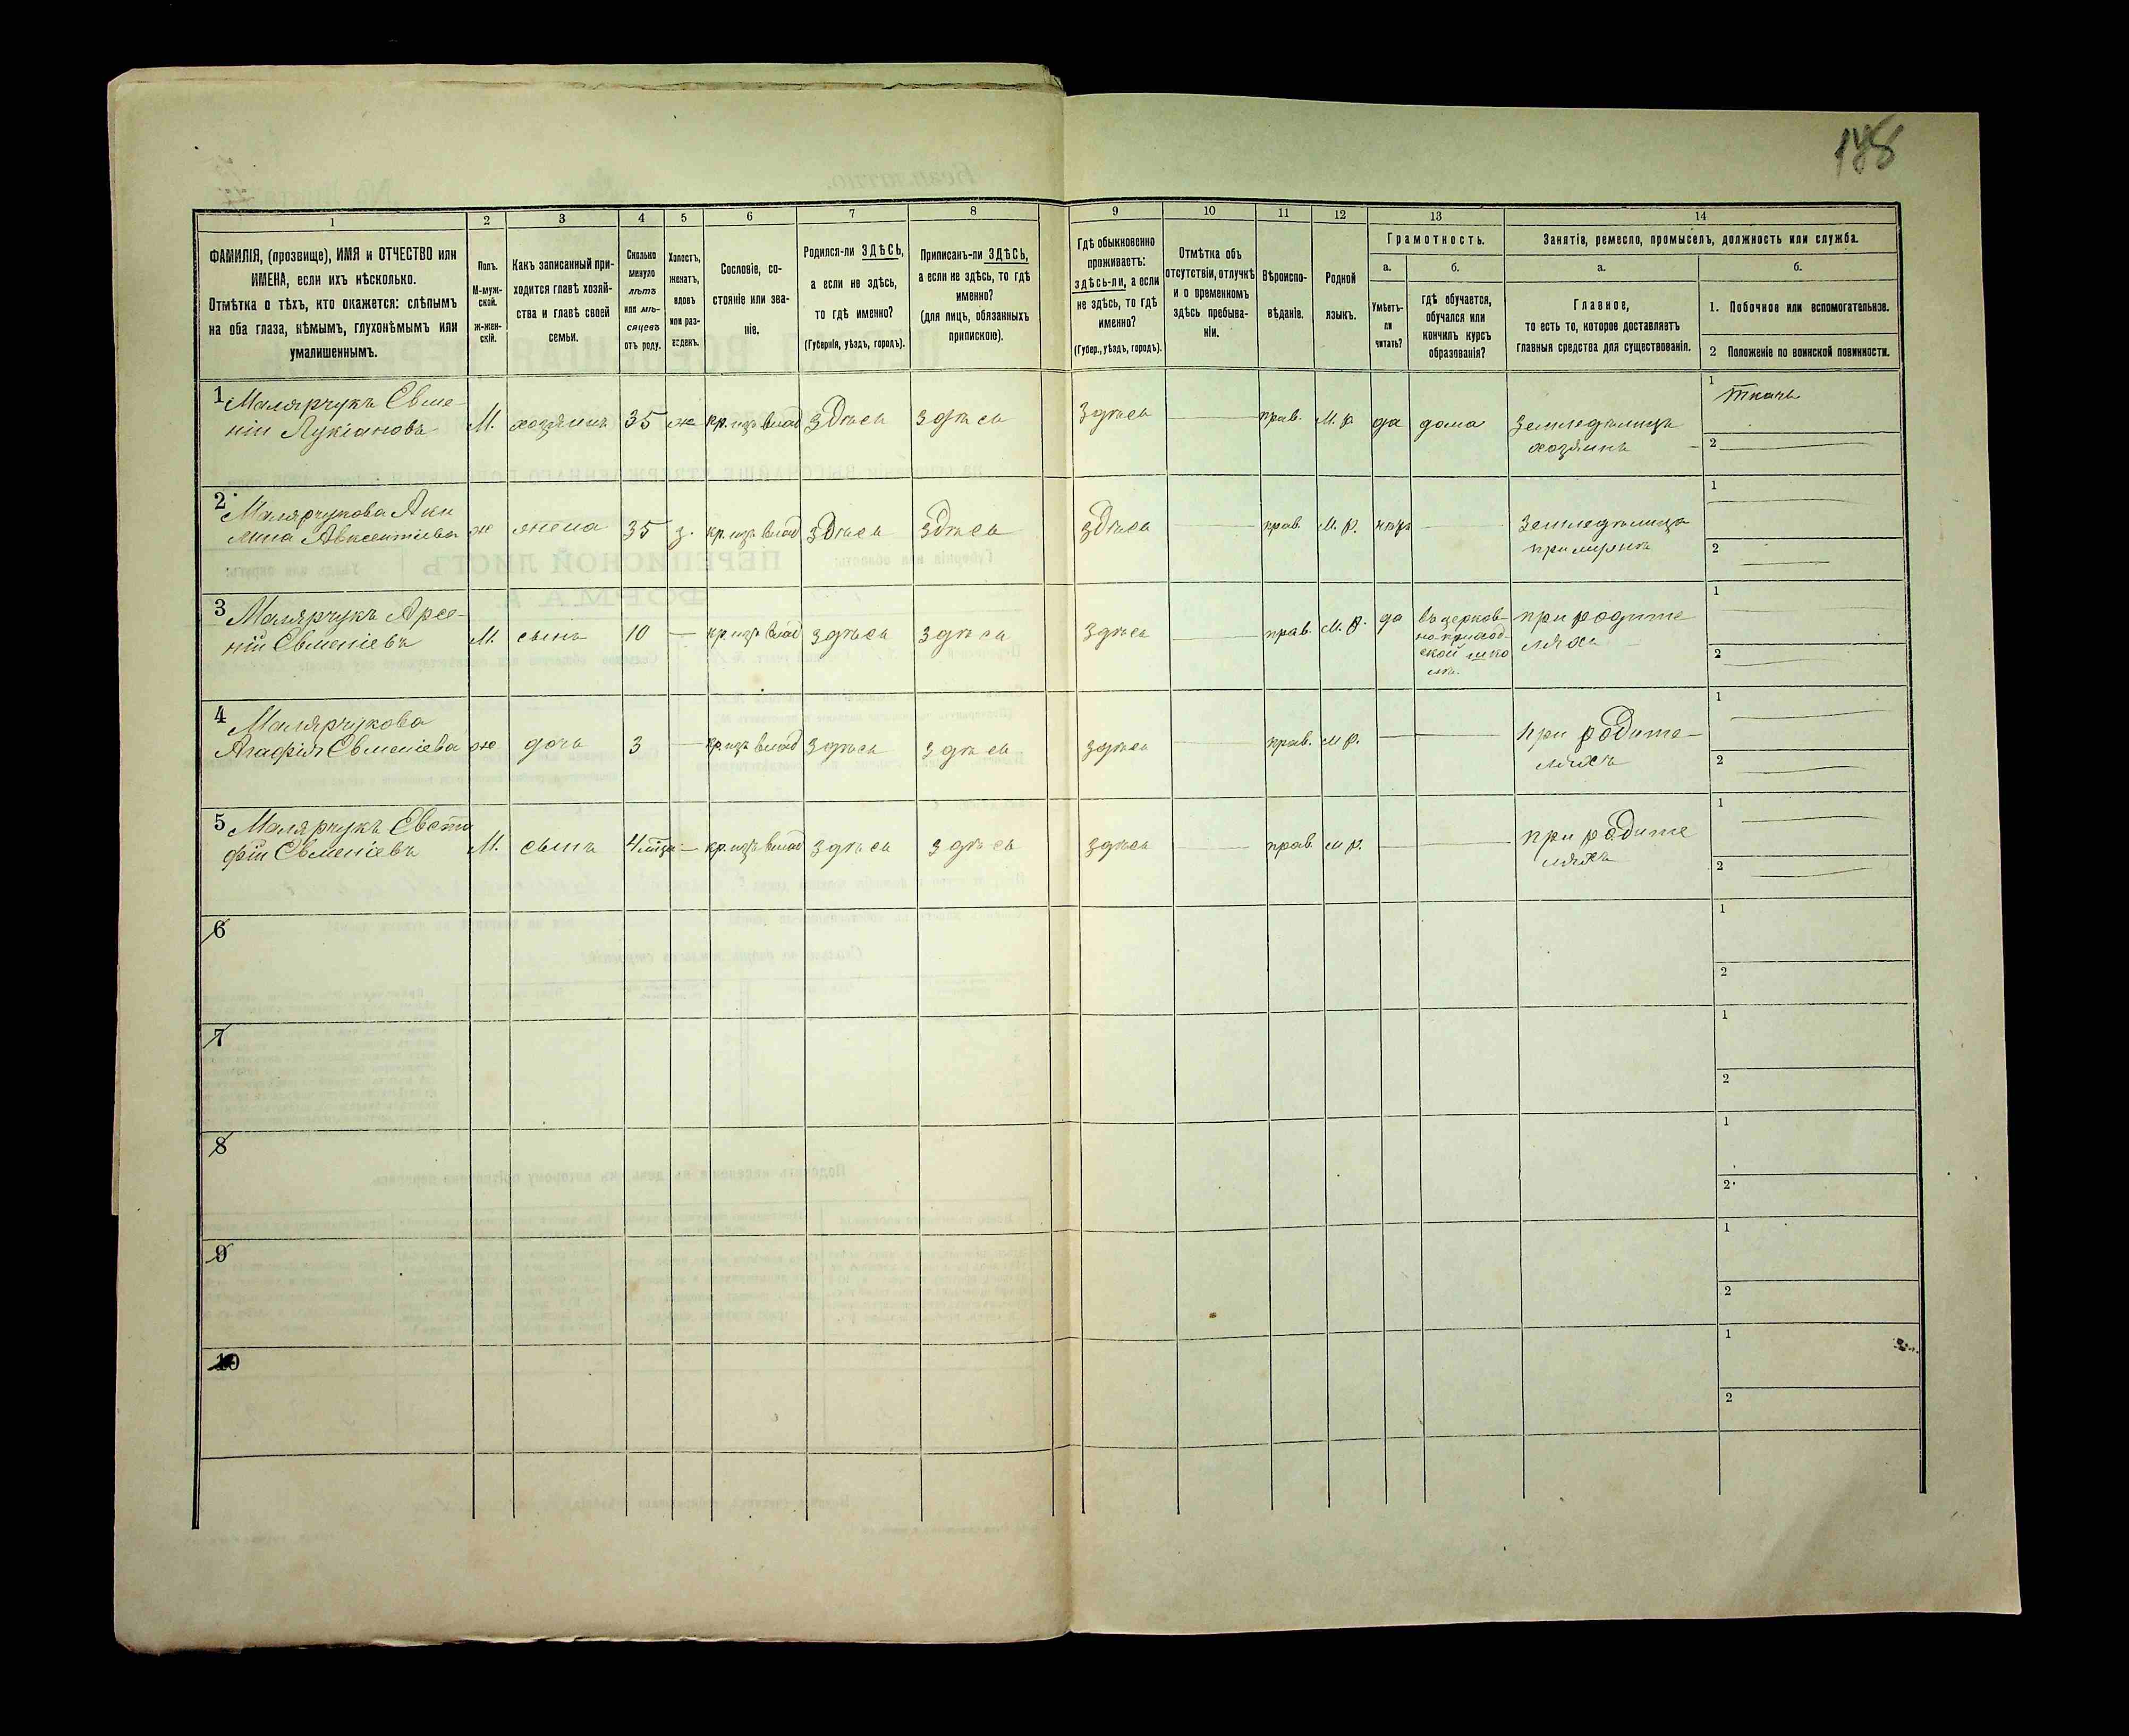 178
1 2 3 4 5 6 7 8 9 10 11 12 13 14
ФАМИЛІЯ, (прозвище), ИМЯ и ОТЧЕСТВО или
ИМЕНА, если ихъ нѣсколько.
Отмѣтка о тѣхъ, кто окажется: слѣпымъ
на оба глаза, нѣмымъ, глухонѣмымъ или
умалишеннымъ.
Полъ.
М-муж-
ской.
ж-жен-
скій.
Какъ записанный при-
ходится главѣ хозяй-
ства и главѣ своей
семьи.
Сколько
минуло
лѣтъ
или мѣ-
сяцевъ
отъ роду.
Холостъ,
женатъ,
вдовъ
или раз-
веденъ.
Сословіе, со-
стояніе или зва-
ніе.
Родился-ли ЗДѢСЬ,
а если не здѣсь,
то гдѣ именно?
(Губернія, уѣздъ, городъ).
Приписанъ-ли ЗДѢСЬ,
а если не здѣсь, то гдѣ
именно?
(для лицъ, обязанныхъ
припискою).
Гдѣ обыкновенно
проживаетъ:
здѣсь-ли, а если
не здѣсь, то гдѣ
именно?
(Губер., уѣздъ, городъ).
Отмѣтка объ
отсутствіи, отлучкѣ
и о временномъ
здѣсь пребыва-
ніи.
Вѣроиспо-
вѣданіе.
Родной
языкъ.
Грамотность.
а.
Умѣетъ-
ли
читать?
б.
гдѣ обучается,
обучался или
кончилъ курсъ
образованія?
Занятія, ремесло, промыселъ, должность или служба.
а.
Главное,
то есть то, которое доставляетъ
главныя средства для существованія.
б.
1. Побочное или вспомогательное.
2 Положеніе по воинской повинности.
1 Малярчукъ Евме-
ній Лукіановъ
М. хозяинъ 35 ж кр. изъ влад здѣсь здѣсь здѣсь прав. М. р да дома
Земледѣлецъ
хозяинъ
1 Ткачъ
2
2 Малярчукова Аки
лина Авксентіева
ж жена 35 з. кр. изъ влад здѣсь здѣсь здѣсь прав М. р.
1
2
3 Малярчукъ Арсе-
ній Евменіевъ
М. сынъ 10 кр. изъ влад здѣсь здѣсь здѣсь прав. М. р. да
въ церков-
но приход-
ской шко
лѣ.
при родите
ляхъ
1
2
4 Малярчукова
Агафія Евменіева
ж дочь 3 кр. изъ влад здѣсь здѣсь здѣсь прав. м р.
при родите-
ляхъ
1
2
5 Малярчукъ Евста
фій Евменіевъ
М. сынъ 4 мца кр. изъ влад здѣсь здѣсь здѣсь прав. м р.
при родите
ляхъ
1
2
6
1
2
7
1
2
8
1
2
9
1
2
10
1
2